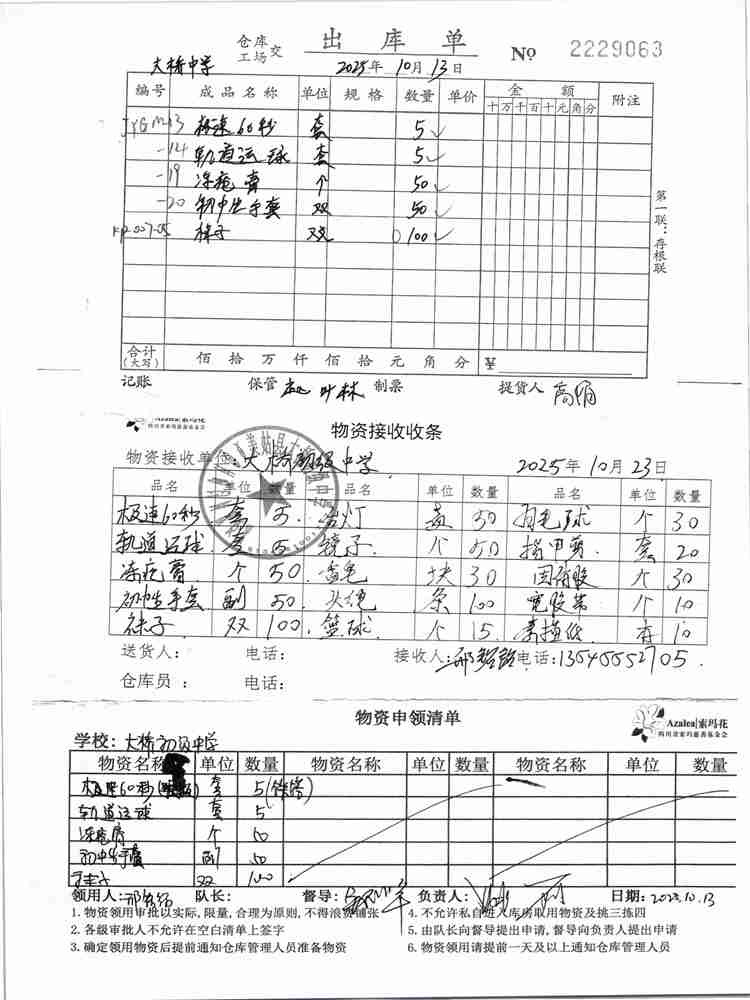 仓库
工场 交 出库单 № 2229063
大桥中学 2025年10月13日
编号 成品名称 单位 规格 数量 单价 金额 附注
十万千百十元角分
JYGM-13 极速60秒 套 5✓
-14 轨道运球 套 5✓
-19 冻疮膏 个 50✓
-20 初中生手套 双 50✓
袜子 双 100✓
第一联：存根联
合计(大写) 佰拾万仟佰拾元角分 ¥
记账 保管 叶林 制票 提货人 高
Azalea|索玛花
四川省索玛慈善基金会
物资接收收条
物资接收单位：大桥初级中学 2025年10月23日
品名 单位 数量 品名 单位 数量 品名 单位 数量
极速60秒 套 5. 台灯 盏 50 羽毛球 个 30
轨道运球 套 5. 镜子. 个 50 指甲剪. 套 20
冻疮膏. 个 50. 块 30 固体胶 个 30
初中生手套 副 50. 头绳 条 100 宽胶带 个 10
袜子 双 100. 篮球 个 15. 素描纸 本 10
送货人： 电话： 接收人： 电话：13545552705.
仓库员： 电话：
物资申领清单
Azalea|索玛花
四川省索玛慈善基金会
学校：大桥初级中学
物资名称 单位 数量 物资名称 单位 数量 物资名称 单位 数量
极速60秒 套 5
轨道运球 套 5
冻疮膏 个 50
初中生手套 副 50
双 100
领用人： 队长： 督导： 负责人： 日期：2025.10.13
1.物资领用审批以实际,限量,合理为原则,不得浪费铺张
4.不允许私自进入库房取用物资及挑三拣四
2.各级审批人不允许在空白清单上签字
5.由队长向督导提出申请,督导向负责人提出申请
3.确定领用物资后提前通知仓库管理人员准备物资
6.物资领用请提前一天及以上通知仓库管理人员